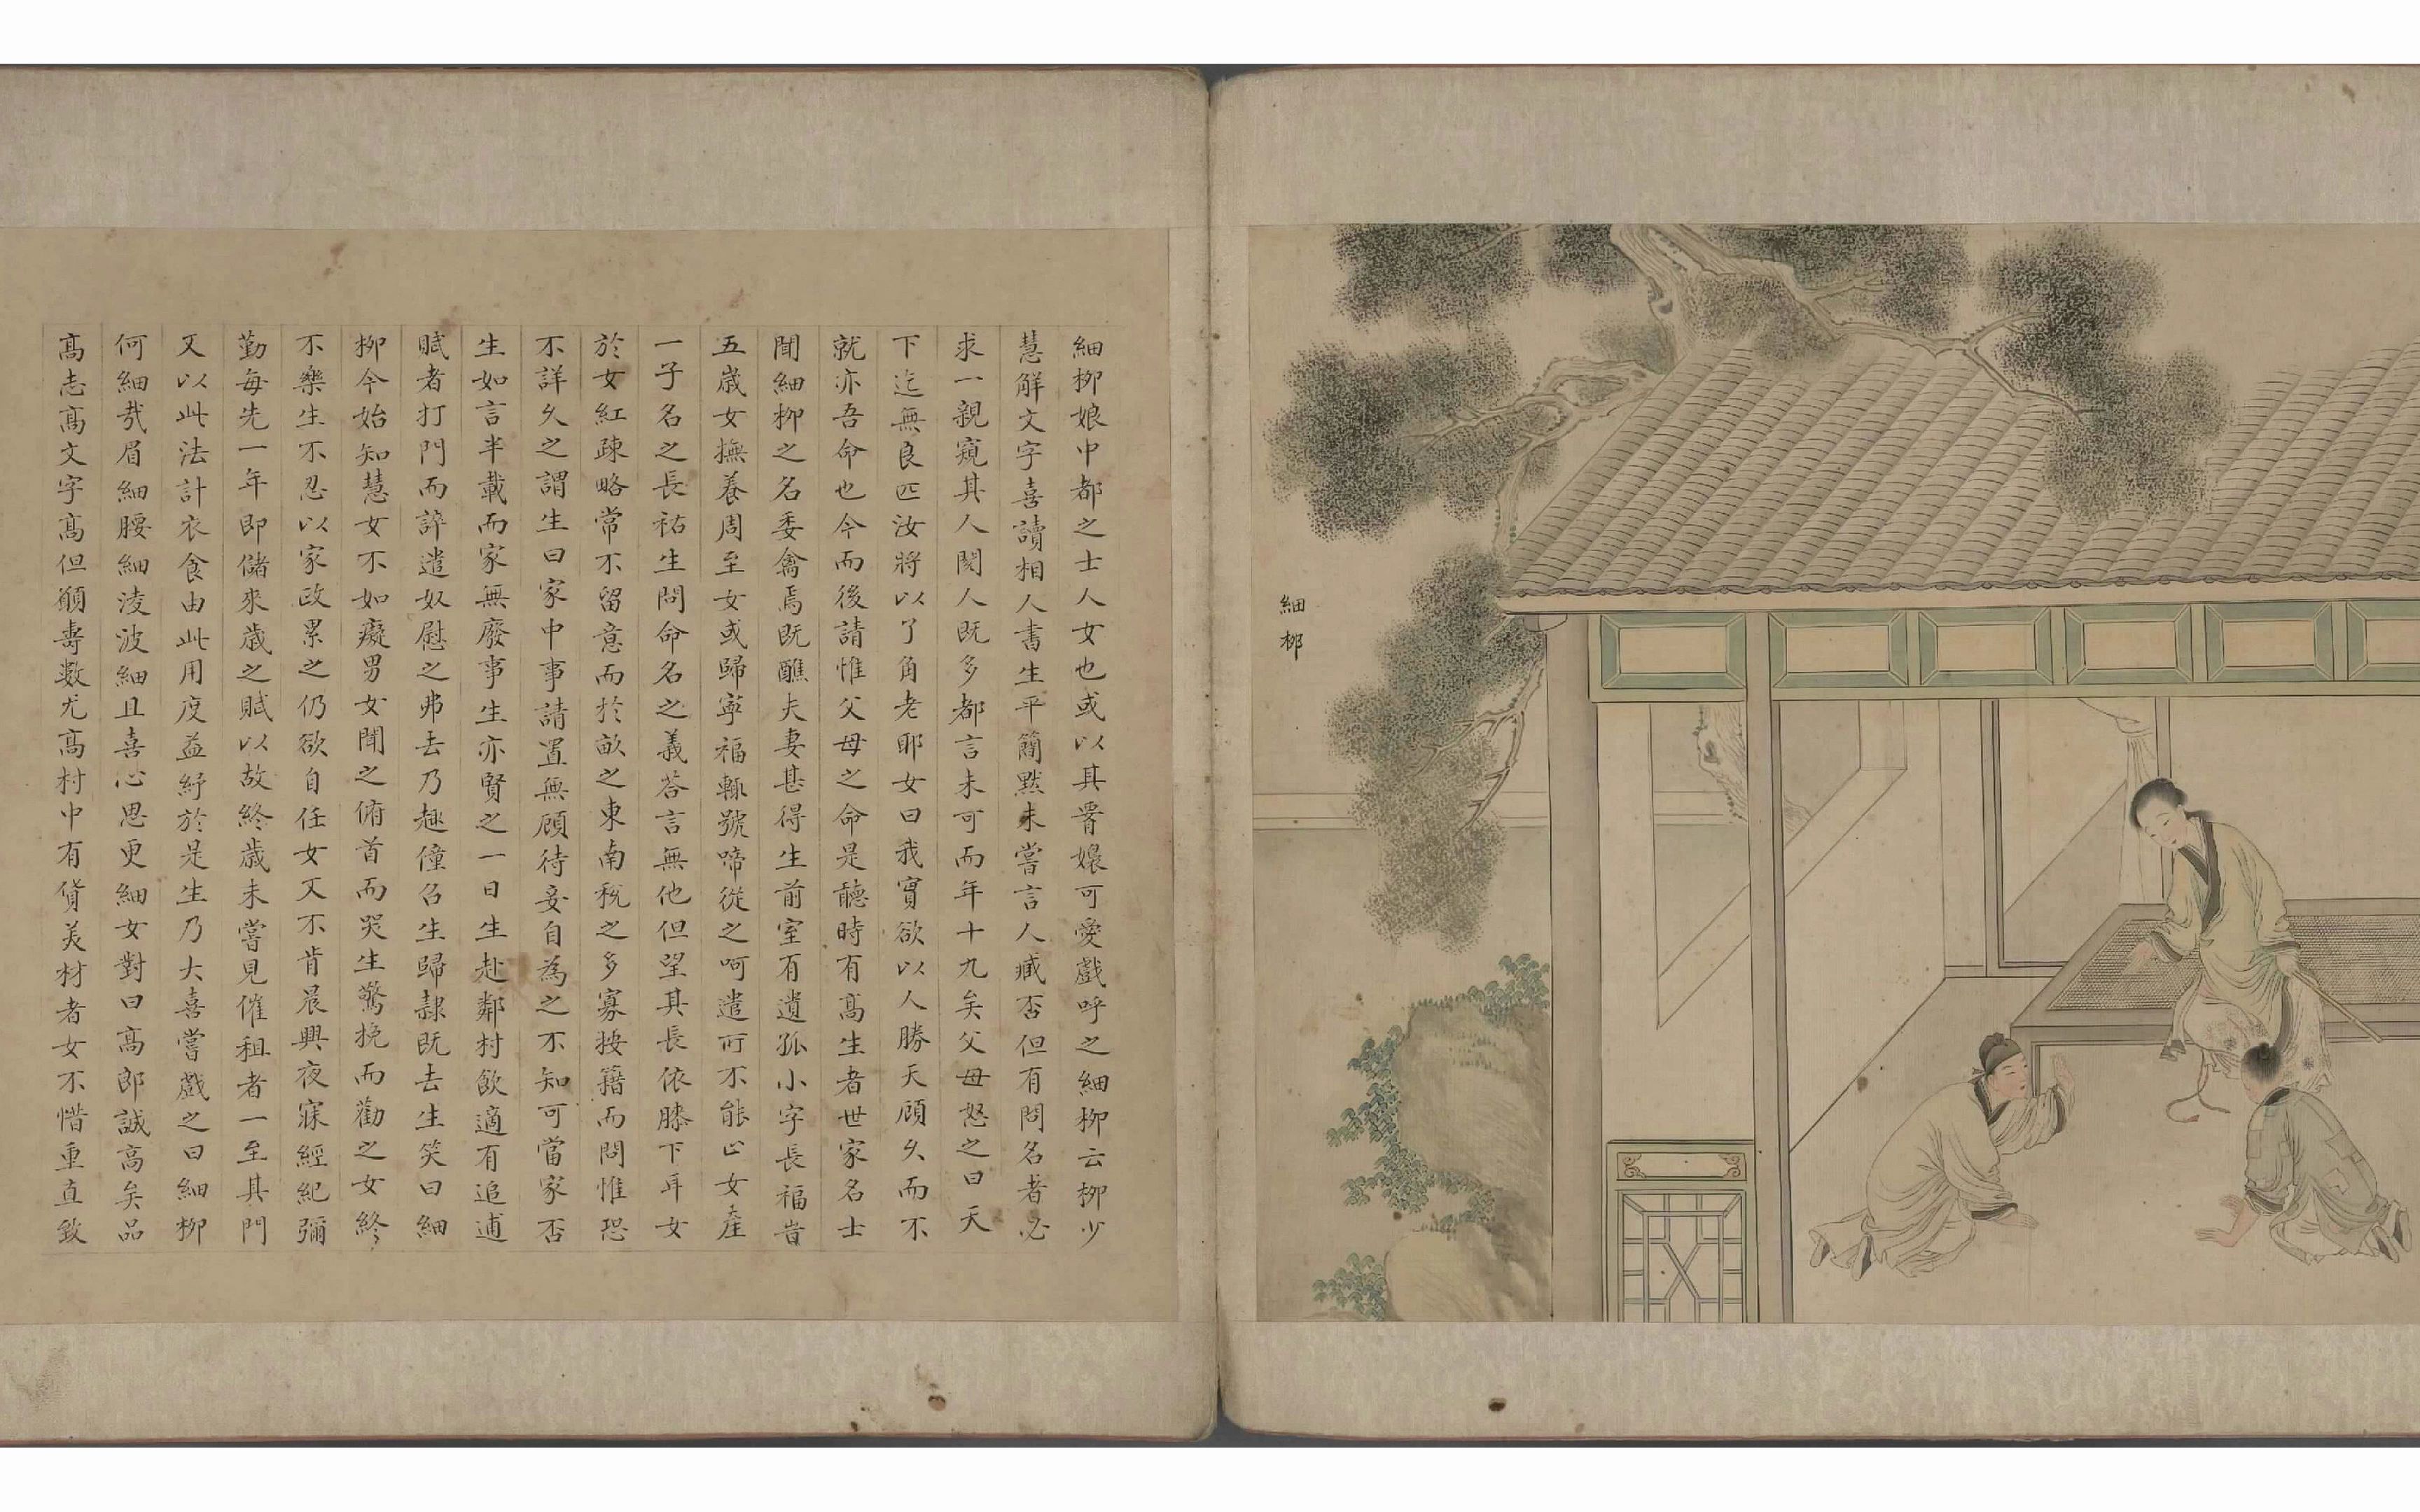 細柳
細柳娘中都之士人女也或以其𦝫嬛可愛戲呼之細柳云柳少
慧解文字喜讀相人書生平簡默未嘗言人臧否但有問名者必
求一親窺其人閱人既多都言未可而年十九矣父母怒之曰天
下迄無良匹汝將以丫角老耶女曰我實欲以人勝天顧久而不
就亦吾命也今而後請惟父母之命是聽時有高生者世家名士
聞細柳之名委禽焉既醮夫妻甚得生前室有遺孤小字長福旹
五歲女撫養周至女或歸寧福輒號啼從之呵遣所不能止女產
一子名之長祜生問命名之義荅言無他但望其長依膝下耳女
於女紅疎略常不留意而於畝之東南稅之多寡按籍而問惟恐
不詳久之謂生曰家中事請置無顧待妾自為之不知可當家否
生如言半載而家無廢事生亦賢之一日生赴鄰村飲適有追逋
賦者打門而誶遣奴慰之弗去乃趣僮召生歸隸既去生笑曰細
柳今始知慧女不如癡男女聞之俯首而哭生驚挽而勸之女終
不樂生不忍以家政累之仍欲自任女又不肯晨興夜寐經紀彌
勤每先一年即儲來歲之賦以故終歲未嘗見催租者一至其門
又以此法計衣食由此用度益紓於是生乃大喜嘗戲之曰細柳
何細哉眉細腰細淩波細且喜心思更細女對曰高郎誠高矣品
高志高文字高但願壽數尤高村中有貨美材者女不惜重直致